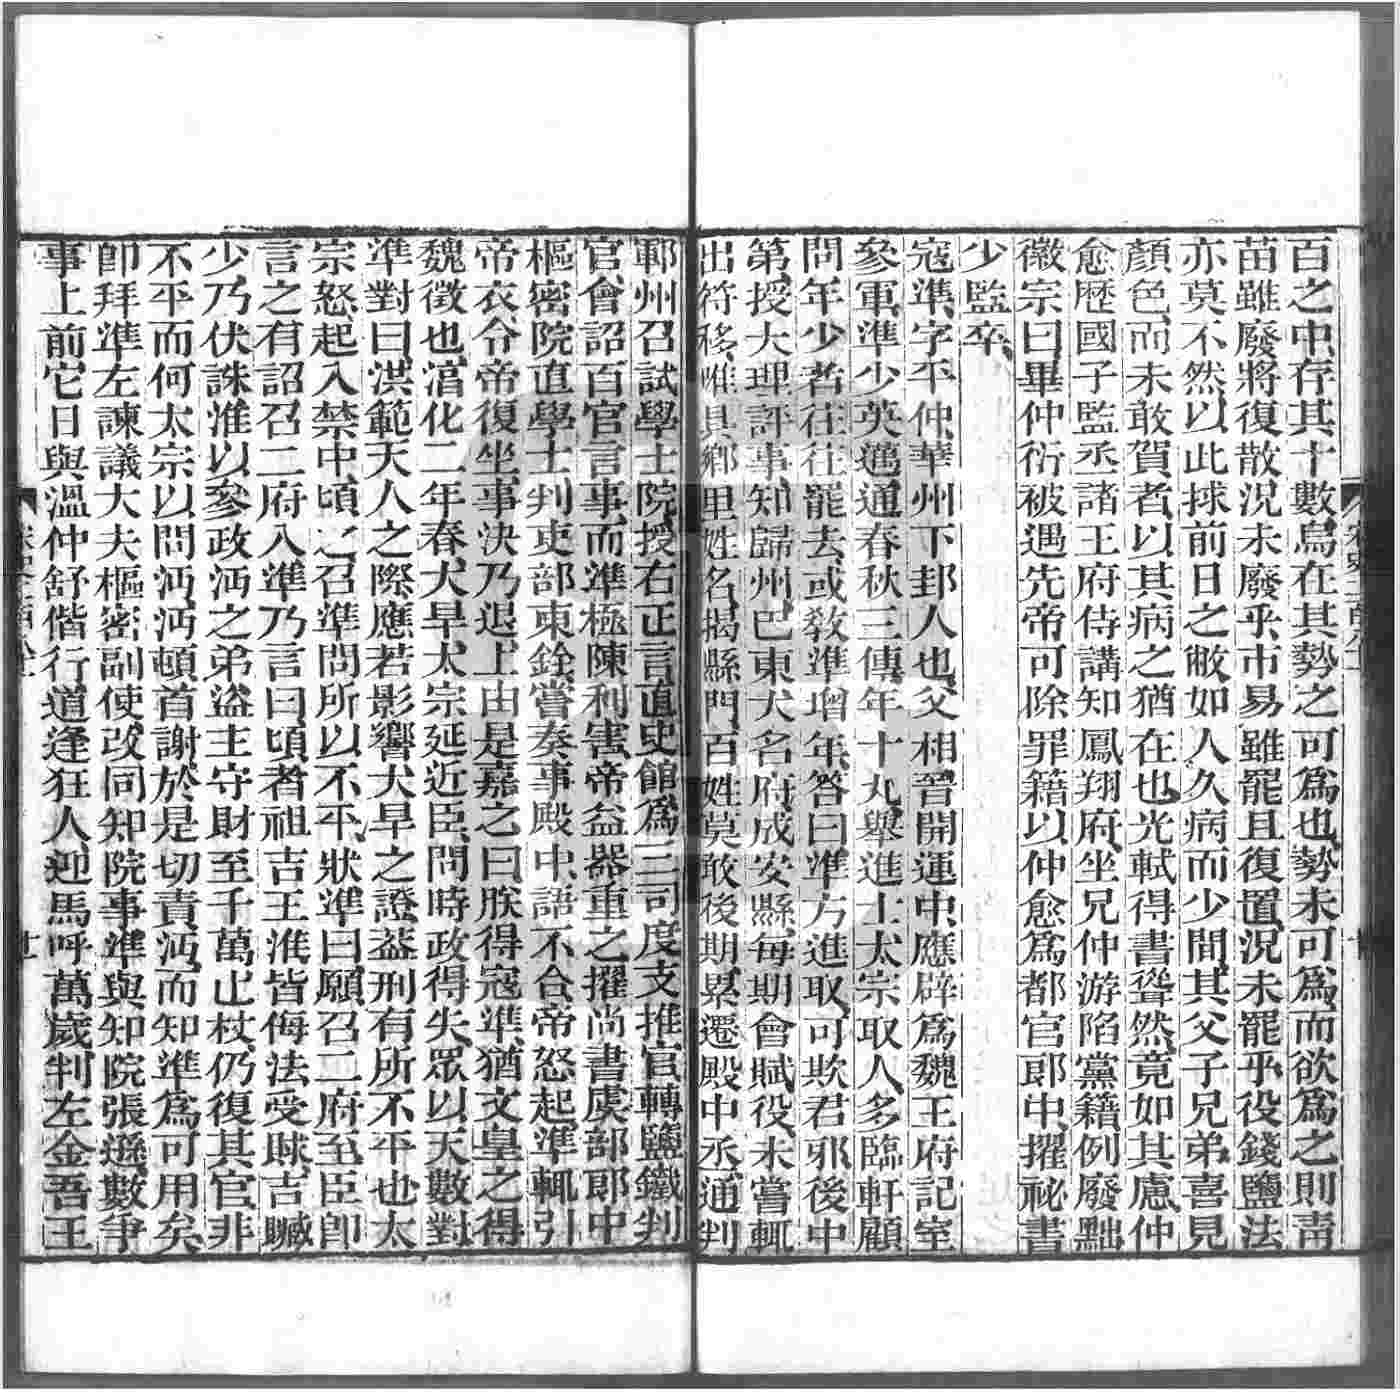 百之中存其十數烏在其勢之可爲也勢未可爲而欲爲之則青
苗雖廢將復散況未廢乎市易雖罷且復置況未罷乎役錢鹽法
亦莫不然以此捄前日之敝如人久病而少閒其父子兄弟喜見
顏色而未敢賀者以其病之猶在也光軾得書聳然竟如其慮仲
愈歷國子監丞諸王府侍講知鳳翔府坐兄仲游陷黨籍例廢黜
徽宗曰畢仲衍被遇先帝可除罪籍以仲愈爲都官郎中擢祕書
少監卒
寇準字平仲華州下邽人也父相晉開運中應辟爲魏王府記室
參軍準少英邁通春秋三傳年十九舉進士太宗取人多臨軒顧
問年少者往往罷去或敎準增年答曰準方進取可欺君邪後中
第授大理評事知歸州巴東大名府成安縣每期會賦役未嘗輒
出符移唯具鄉里姓名揭縣門百姓莫敢後期累遷殿中丞通判
鄆州召試學士院授右正言直史館爲三司度支推官轉鹽鐵判
官會詔百官言事而準極陳利害帝益器重之擢尚書虞部郎中
樞密院直學士判吏部東銓嘗奏事殿中語不合帝怒起準輒引
帝衣令帝復坐事決乃退上由是嘉之曰朕得寇準猶文皇之得
魏徵也淯化二年春大旱太宗延近臣問時政得失眾以天數對
準對曰洪範天人之際應若影響大旱之證蓋刑有所不平也太
宗怒起入禁中頃之召準問所以不平狀準曰願召二府至臣卽
言之有詔召二府入準乃言曰頃者祖吉王淮皆侮法受賕吉贓
少乃伏誅淮以參政沔之弟盜主守財至千萬止杖仍復其官非
不平而何太宗以問沔沔頓首謝於是切責沔而知準爲可用矣
卽拜準左諫議大夫樞密副使改同知院事準與知院張遜數爭
事上前它日與溫仲舒偕行道逢狂人迎馬呼萬歲判左金吾王